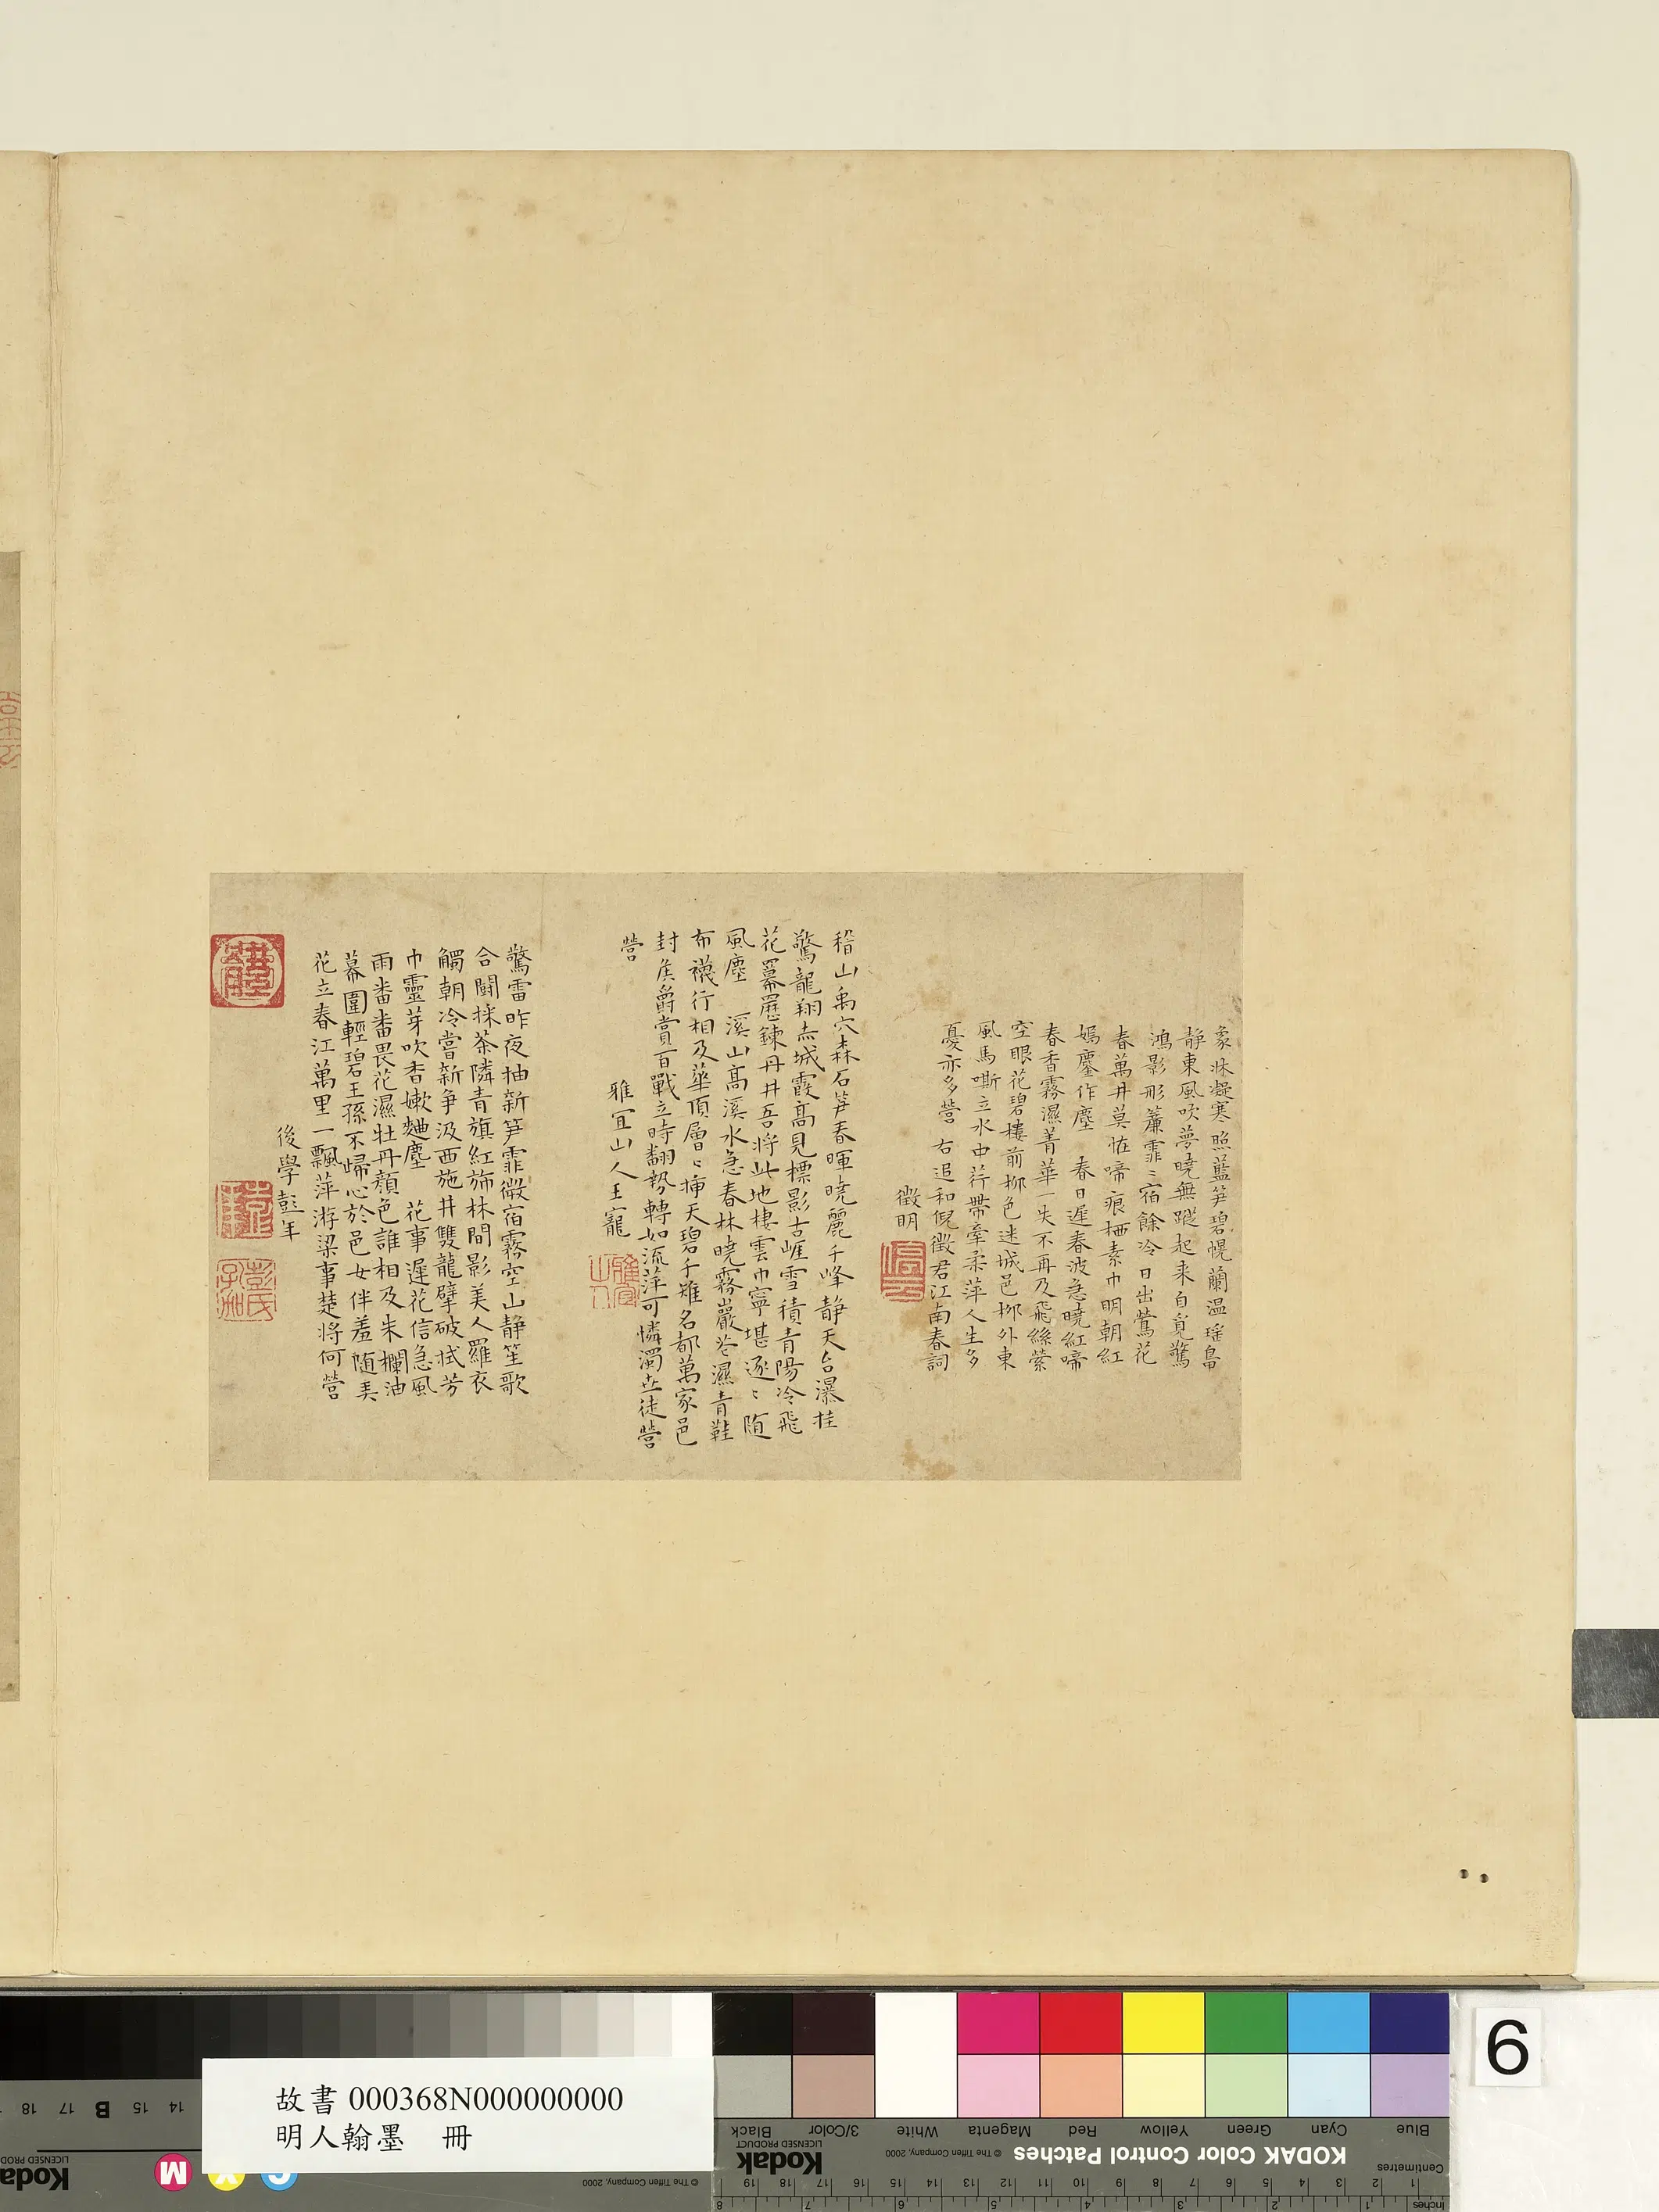 象牀凝寒照藍笋碧幌蘭温瑤鳧
静東風吹夢曉無蹤起來自覔驚
鴻影形簾霏〻宿餘冷日出鶯花
春萬井莫恠啼痕栖素巾明朝紅
嫣塵作塵 春日遲春波急曉紅啼
春香霧濕菁華一失不再及飛絲縈
空眼花碧樓前柳色迷城邑柳外東
風馬嘶立水中荇帶牽柔萍人生多
憂亦多營 右追和倪徵君江南春詞
徵明
稽山禹穴森石笋春暉曉麗千峰静天台瀑挂
驚龍翔赤城霞高見標影古崕雪積青陽冷飛
花羃䍥鍊丹井吾將此地棲雲巾寧堪逐〻随
風塵 溪山高溪水急春林曉霧巖苍濕青鞋
布襪行相及華頂層〻揷天碧千雉名都萬家邑
封矦爵賞百戰立時翻勢轉如流萍可憐濁世徒營
營
雅宜山人王寵
雅宜山人
驚雷昨夜抽新笋霏微宿霧空山静笙歌
合闘採茶隣青旗紅斾林間影美人羅衣
觸朝冷嘗新争汲西施井雙龍擘破拭芳
巾靈芽吹香嫩麯塵 花事遲花信急風
雨番番畏花濕牡丹顔色誰相及朱欄油
幕圍輕碧王孫不歸心於邑女伴羞随美
花立春江萬里一飄萍游梁事楚将何營
後學彭年
彭氏孔加
6
故書 000368N000000000
明人翰墨 冊
KODAK Color Control Patches
© The Tiffen Company, 2000
Kodak
LICENSED PRODUCT
Blue Cyan Green Yellow Red Magenta White 3/Color Black
Centimetres
Inches
1 2 3 4 5 6 7 8 9 10 11 12 13 14 15 16 17 18 19
Kodak
LICENSED PRODUCT
© The Tiffen Company, 2000
C Y M
14 15 B 17 18